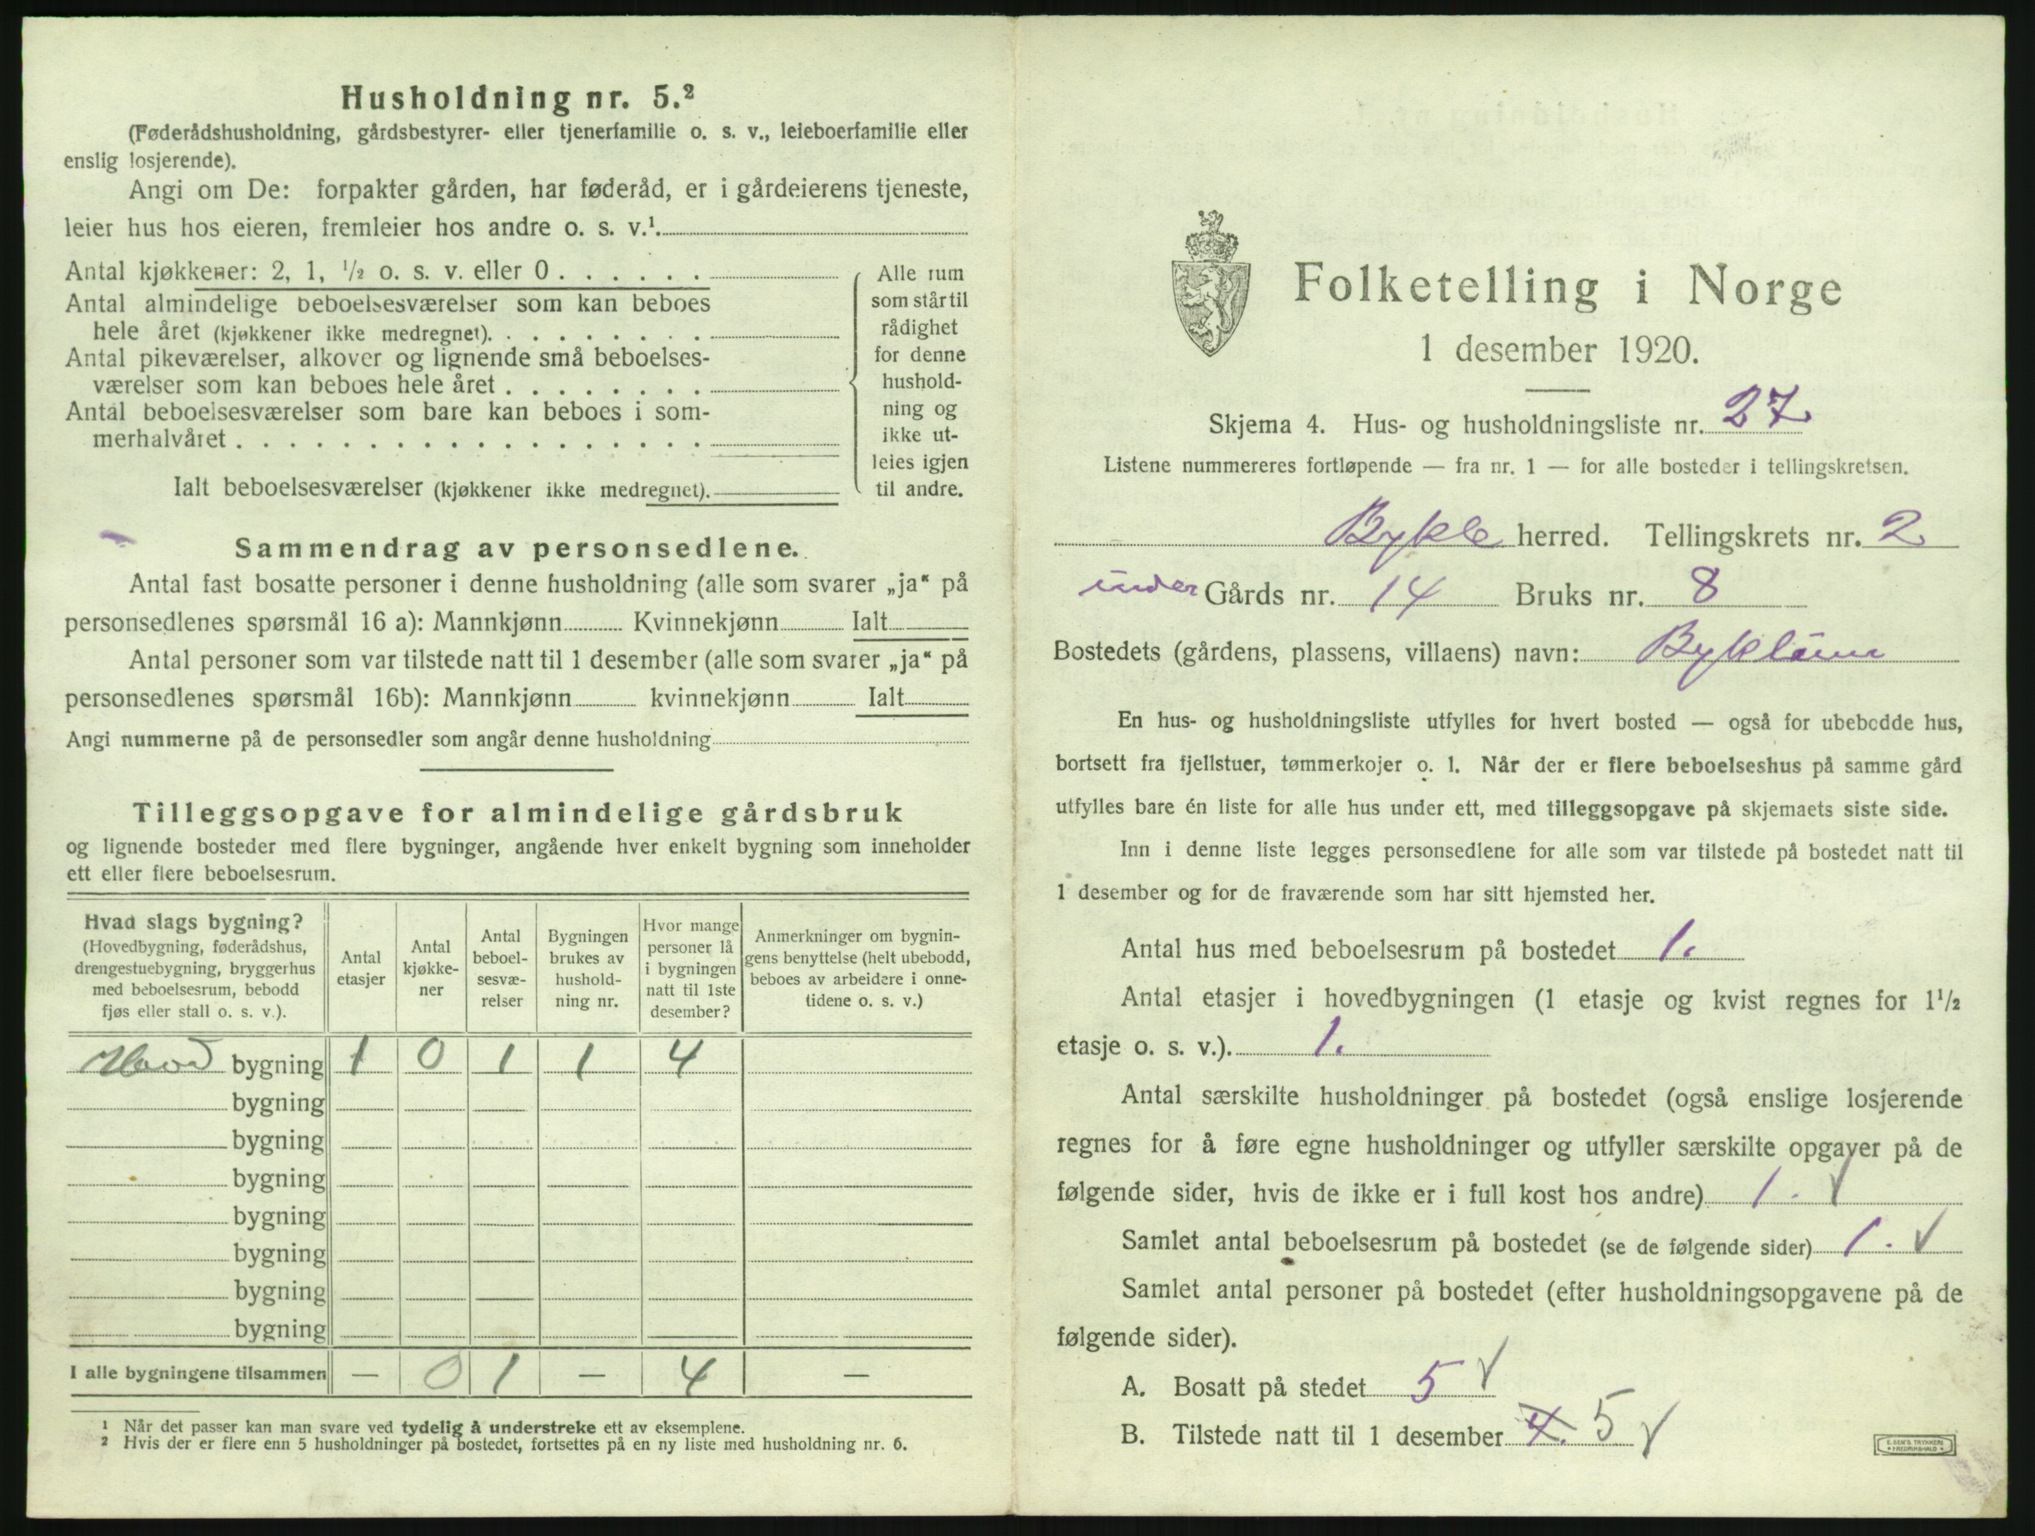 Husholdning nr. 5.²
(Føderådshusholdning, gårdsbestyrer- eller tjenerfamilie o. s. v., leieboerfamilie eller
enslig losjerende).
Angi om De: forpakter gården, har føderåd, er i gårdeierens tjeneste,
leier hus hos eieren, fremleier hos andre o. s. v.¹
Antal kjøkkener: 2, 1, ½ o. s. v. eller 0
Antal almindelige beboelsesværelser som kan beboes
hele året (kjøkkener ikke medregnet)
Antal pikeværelser, alkover og lignende små beboelses-
værelser som kan beboes hele året
Antal beboelsesværelser som bare kan beboes i som-
merhalvåret
Ialt beboelsesværelser (kjøkkener ikke medregnet)
Alle rum
som står til
rådighet
for denne
hushold-
ning og
ikke ut-
leies igjen
til andre.
Sammendrag av personsedlene.
Antal fast bosatte personer i denne husholdning (alle som svarer „ja“ på
personsedlenes spørsmål 16 a): Mannkjønn Kvinnekjønn Ialt
Antal personer som var tilstede natt til 1 desember (alle som svarer „ja“ på
personsedlenes spørsmål 16b): Mannkjønn kvinnekjønn Ialt
Angi nummerne på de personsedler som angår denne husholdning
Tilleggsopgave for almindelige gårdsbruk
og lignende bosteder med flere bygninger, angående hver enkelt bygning som inneholder
ett eller flere beboelsesrum.
Hvad slags bygning?
(Hovedbygning, føderådshus,
drengestuebygning, bryggerhus
med beboelsesrum, bebodd
fjøs eller stall o. s. v.).
Antal
etasjer
Antal
kjøkke-
ner
Antal
beboel-
sesvæ-
relser
Bygningen
brukes av
hushold-
ning nr.
Hvor mange
personer lå
i bygningen
natt til 1ste
desember?
Anmerkninger om bygnin-
gens benyttelse (helt ubebodd,
beboes av arbeidere i onne-
tidene o. s. v.)
Hoved bygning 1 0 1 1 4
bygning
bygning
bygning
bygning
bygning
bygning
bygning
I alle bygningene tilsammen — 0 1 — 4 —
¹ Når det passer kan man svare ved tydelig å understreke ett av eksemplene.
² Hvis der er flere enn 5 husholdninger på bostedet, fortsettes på en ny liste med husholdning nr. 6.
Folketelling i Norge
1 desember 1920.
Skjema 4. Hus- og husholdningsliste nr. 27
Listene nummereres fortløpende — fra nr. 1 — for alle bosteder i tellingskretsen.
Bykle herred. Tellingskrets nr. 2
under Gårds nr. 14 Bruks nr. 8
Bostedets (gårdens, plassens, villaens) navn: Byklum
En hus- og husholdningsliste utfylles for hvert bosted — også for ubebodde hus,
bortsett fra fjellstuer, tømmerkojer o. l. Når der er flere beboelseshus på samme gård
utfylles bare én liste for alle hus under ett, med tilleggsopgave på skjemaets siste side.
Inn i denne liste legges personsedlene for alle som var tilstede på bostedet natt til
1 desember og for de fraværende som har sitt hjemsted her.
Antal hus med beboelsesrum på bostedet 1.
Antal etasjer i hovedbygningen (1 etasje og kvist regnes for 1½
etasje o. s. v.). 1.
Antal særskilte husholdninger på bostedet (også enslige losjerende
regnes for å føre egne husholdninger og utfyller særskilte opgaver på de
følgende sider, hvis de ikke er i full kost hos andre) 1. √
Samlet antal beboelsesrum på bostedet (se de følgende sider) 1. √
Samlet antal personer på bostedet (efter husholdningsopgavene på de
følgende sider).
A. Bosatt på stedet 5 √
B. Tilstede natt til 1 desember 4. 5 √